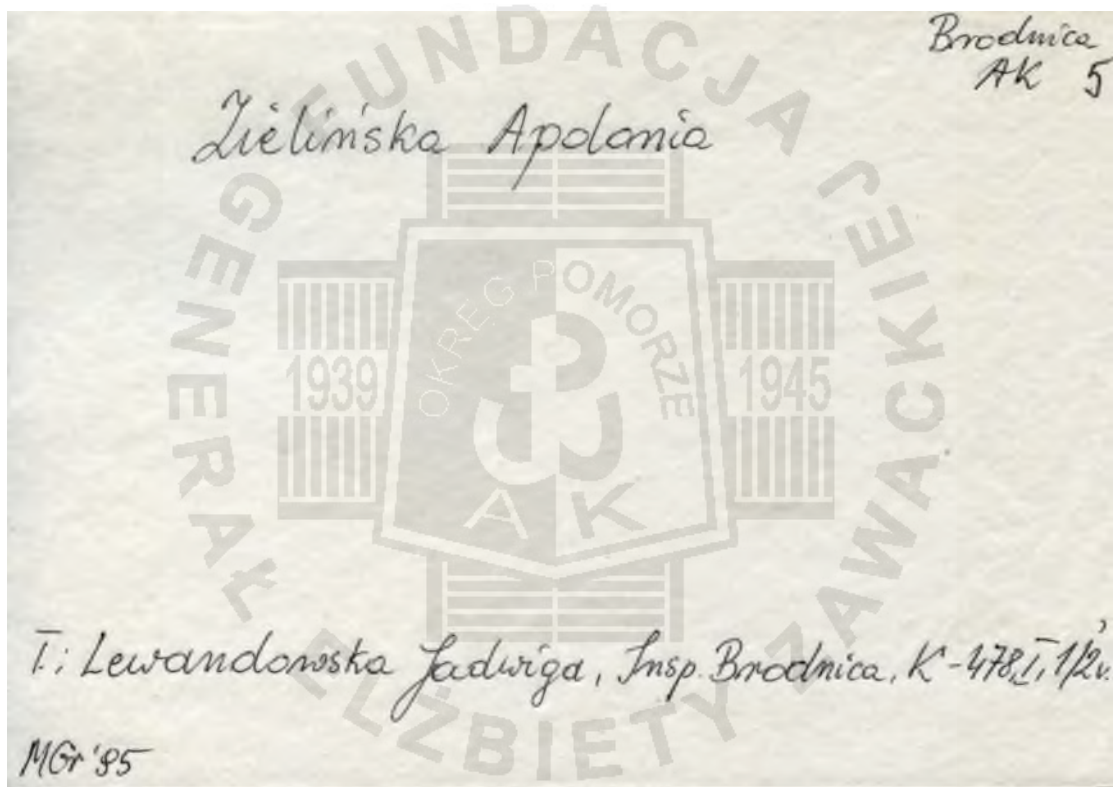 Brodnica
AK 5
Zielińska Apolonia
T.: Lewandowska Jadwiga, Insp. Brodnica, K-478, I, 1/2 v.
MGr '95
FUNDACJA GENERAŁ ELŻBIETY ZAWACKIEJ
OKRĘG POMORZE
1939
1945
AK